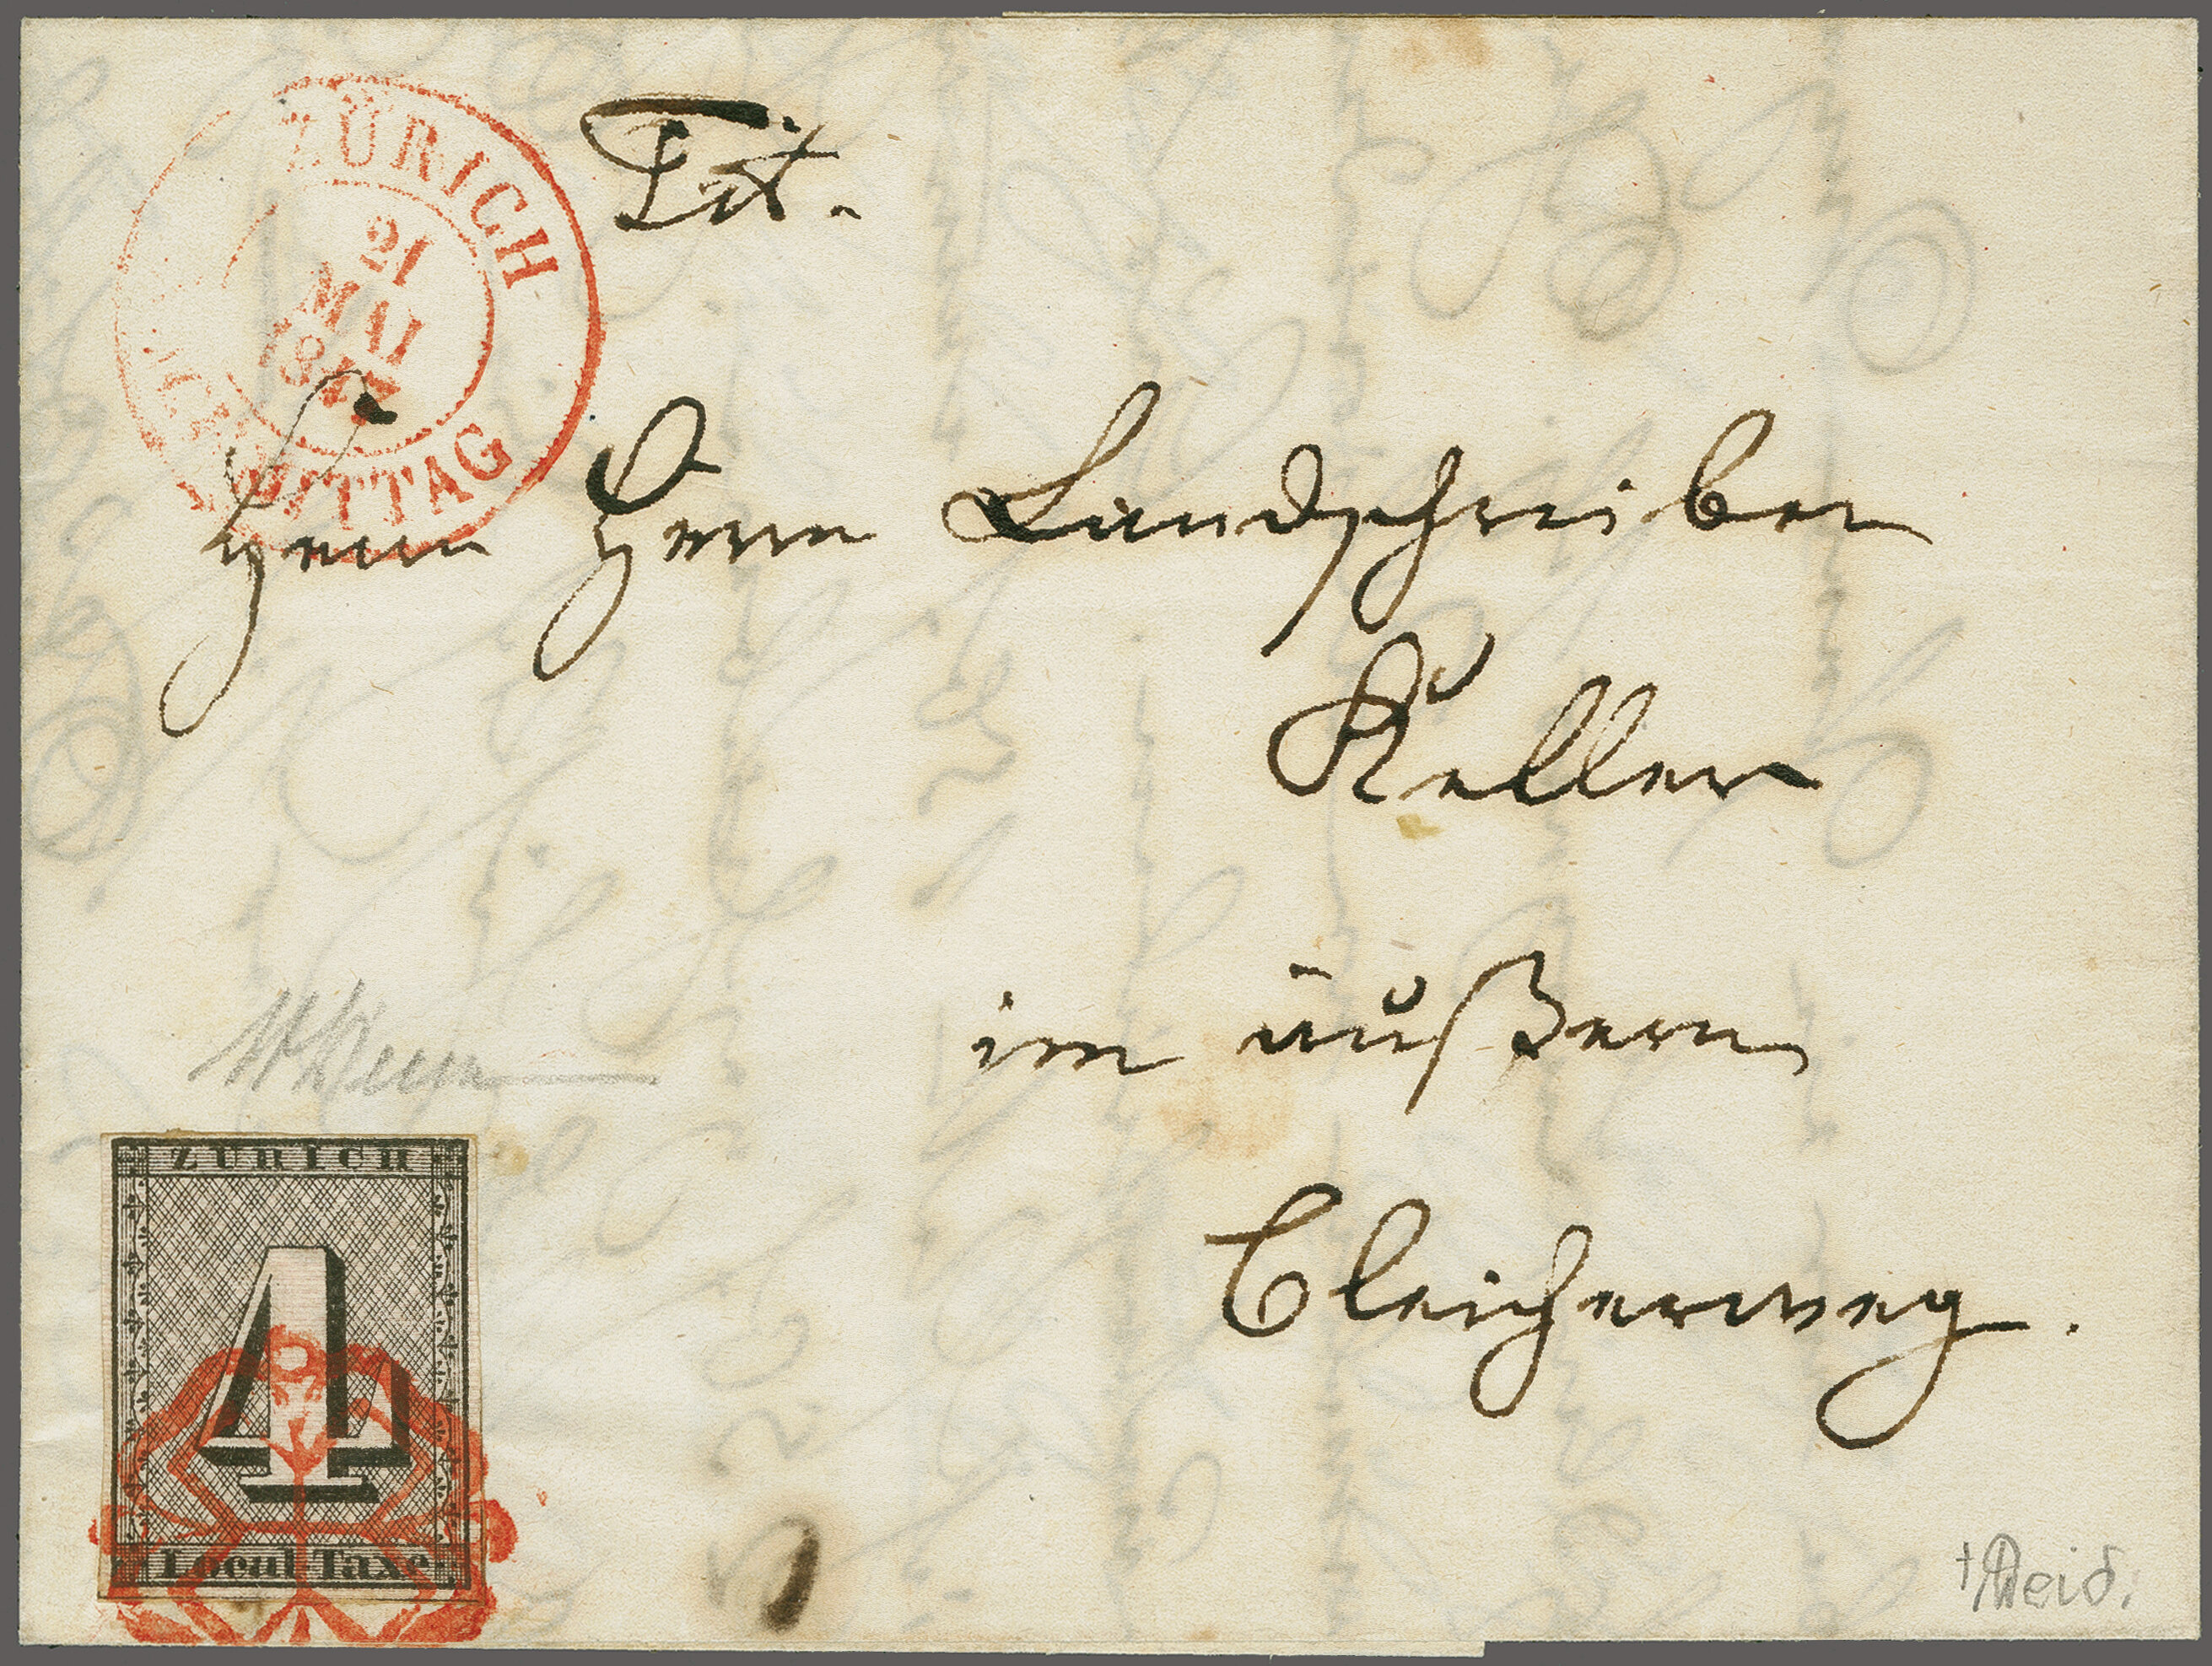 ZÜRICH
21
MAI
1847
NACHMITTAG
Tit.
Herrn Herrn Landschreiber
Keller
im äußern
Bleicherweg.
ZÜRICH
4
Local-Taxe